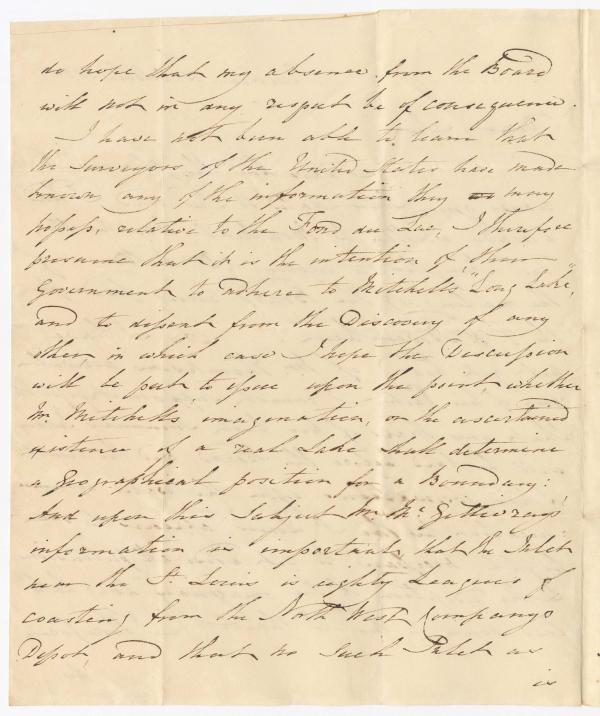 do hope that my absence from the Board
will not in any respect be of consequence.
I have not been able to learn that
the Surveyors of the United States have made
known any of the information they may
possess, relative to the Fond du Lac, I therefore
presume that it is the intention of their
Government to adhere to Mitchells "Long Lake",
and to dissent from the Discovery of any
other, in which case I hope the Discussion
will be put to issue upon the point, whether
Mr. Mitchells imagination, or the ascertained
existence of a real Lake shall determine
a Geographical position for a Boundary:
And upon this Subject Mr. Mc. Gillivrays
information is important that the Inlet
near the St. Louis is eighty Leagues of
coasting from the North West Companys
Depot, and that no such Inlet as
is